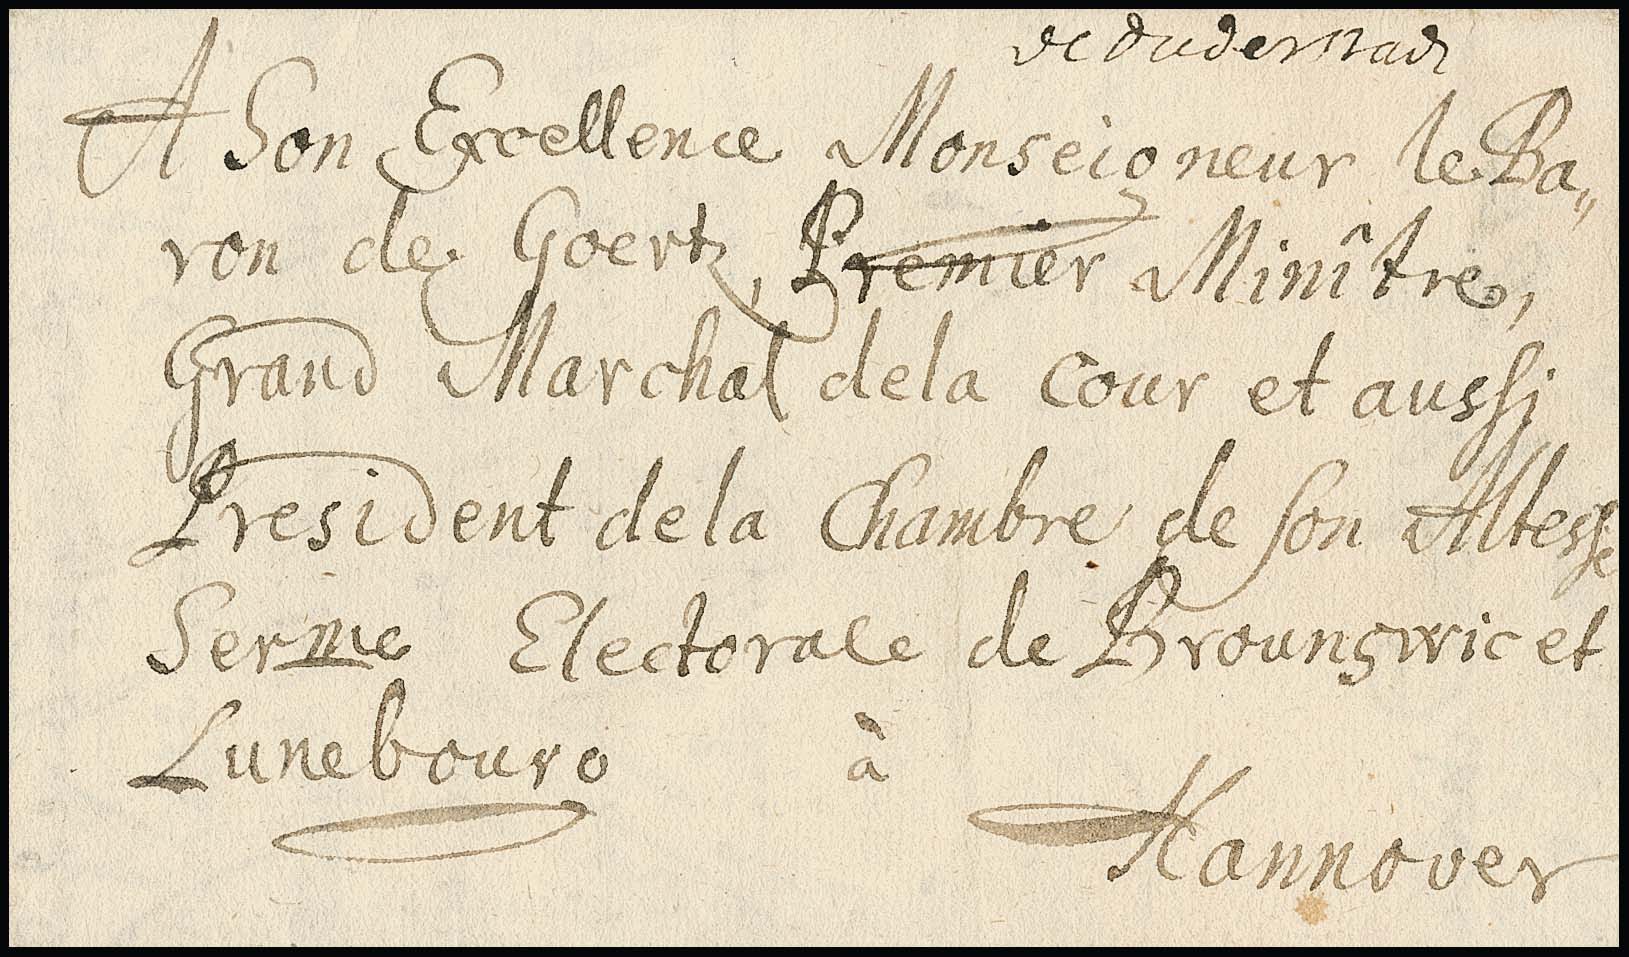 de Duderstadt
A Son Excellence Monseigneur le Ba„
ron de Goertz, Premier Minître,
Grand Marchal dela Cour et aussi
President dela Chambre de son Altesse
Serme Electorale de Brounswic et
Lunebourg à
Hannover